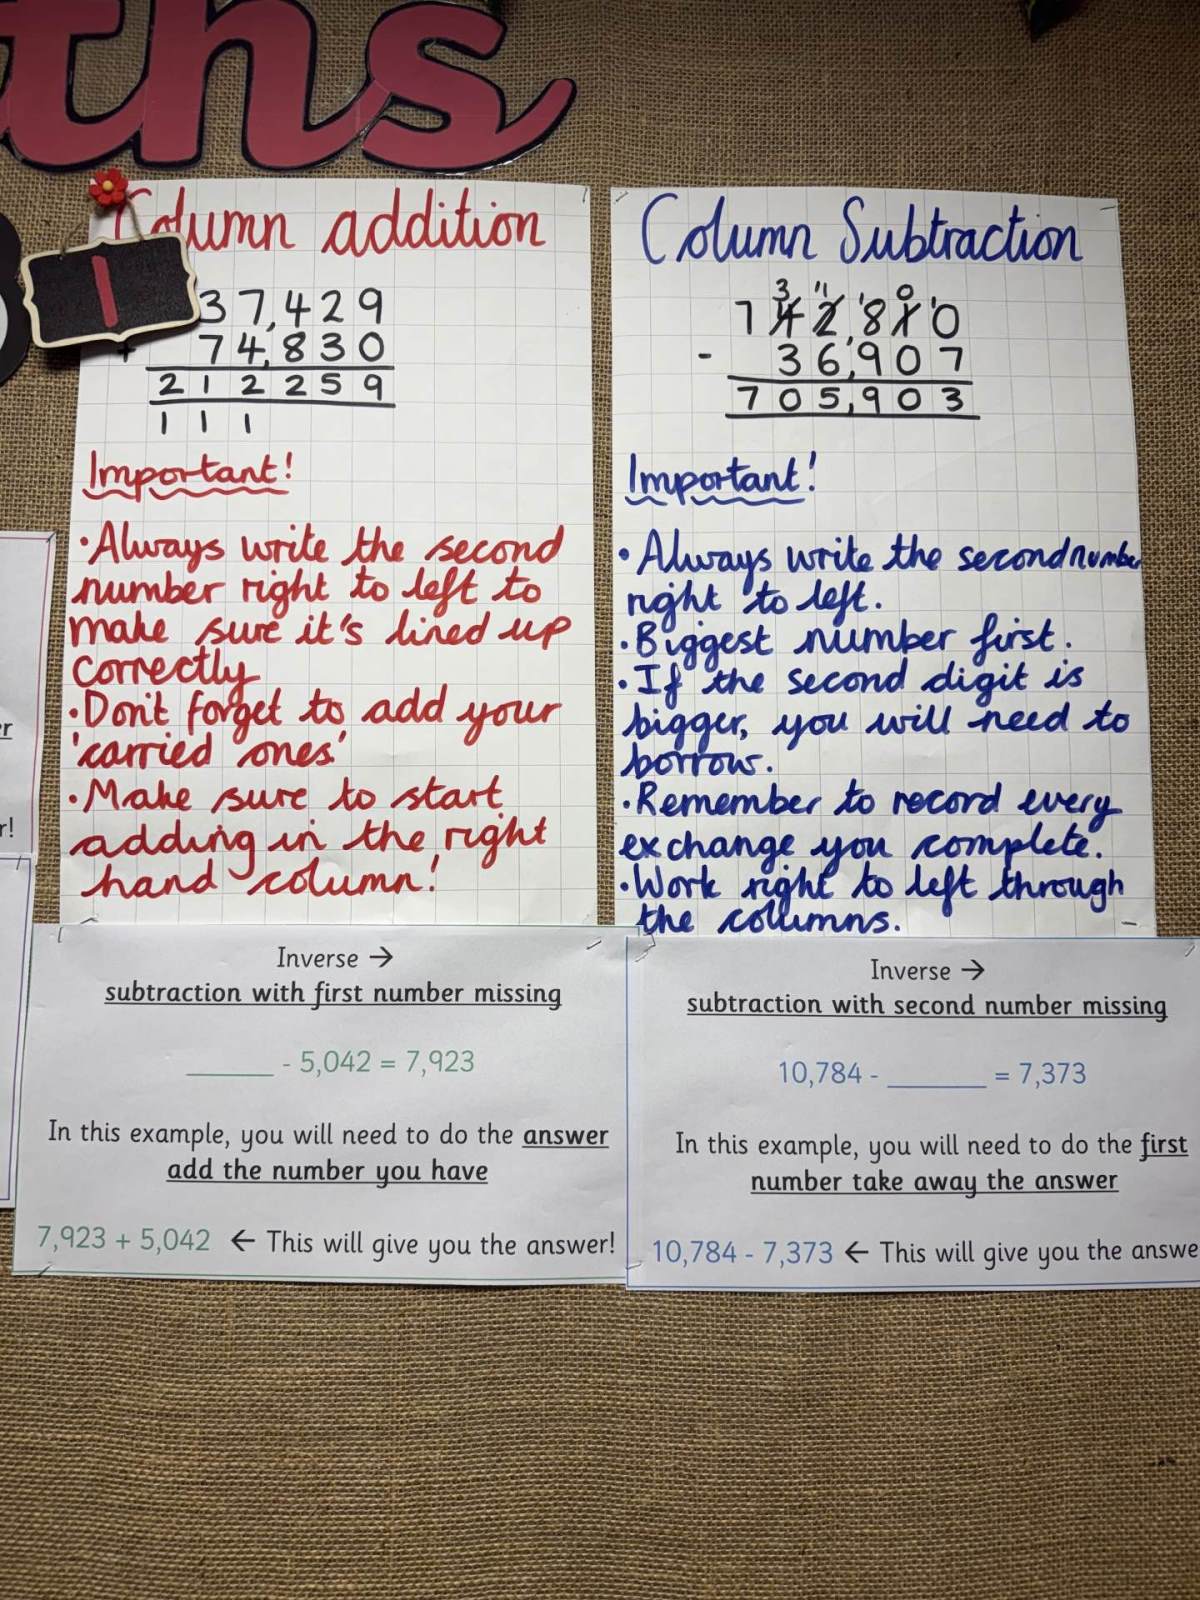 ths
1
Column addition
37,429
+ 74,830
212259
111
Important!
•Always write the second
number right to left to
make sure it's lined up
correctly
•Don't forget to add your
'carried ones'
•Make sure to start
adding in the right
hand column!
Column Subtraction
3 11 0
7 4 2,18 1 10
- 36,907
705,903
Important!
•Always write the second number
right to left.
•Biggest number first.
•If the second digit is
bigger, you will need to
borrow.
•Remember to record every
exchange you complete.
•Work right to left through
the columns.
r
r!
Inverse →
subtraction with first number missing
______ - 5,042 = 7,923
In this example, you will need to do the answer
add the number you have
7,923 + 5,042 ← This will give you the answer!
Inverse →
subtraction with second number missing
10,784 - _______ = 7,373
In this example, you will need to do the first
number take away the answer
10,784 - 7,373 ← This will give you the answe